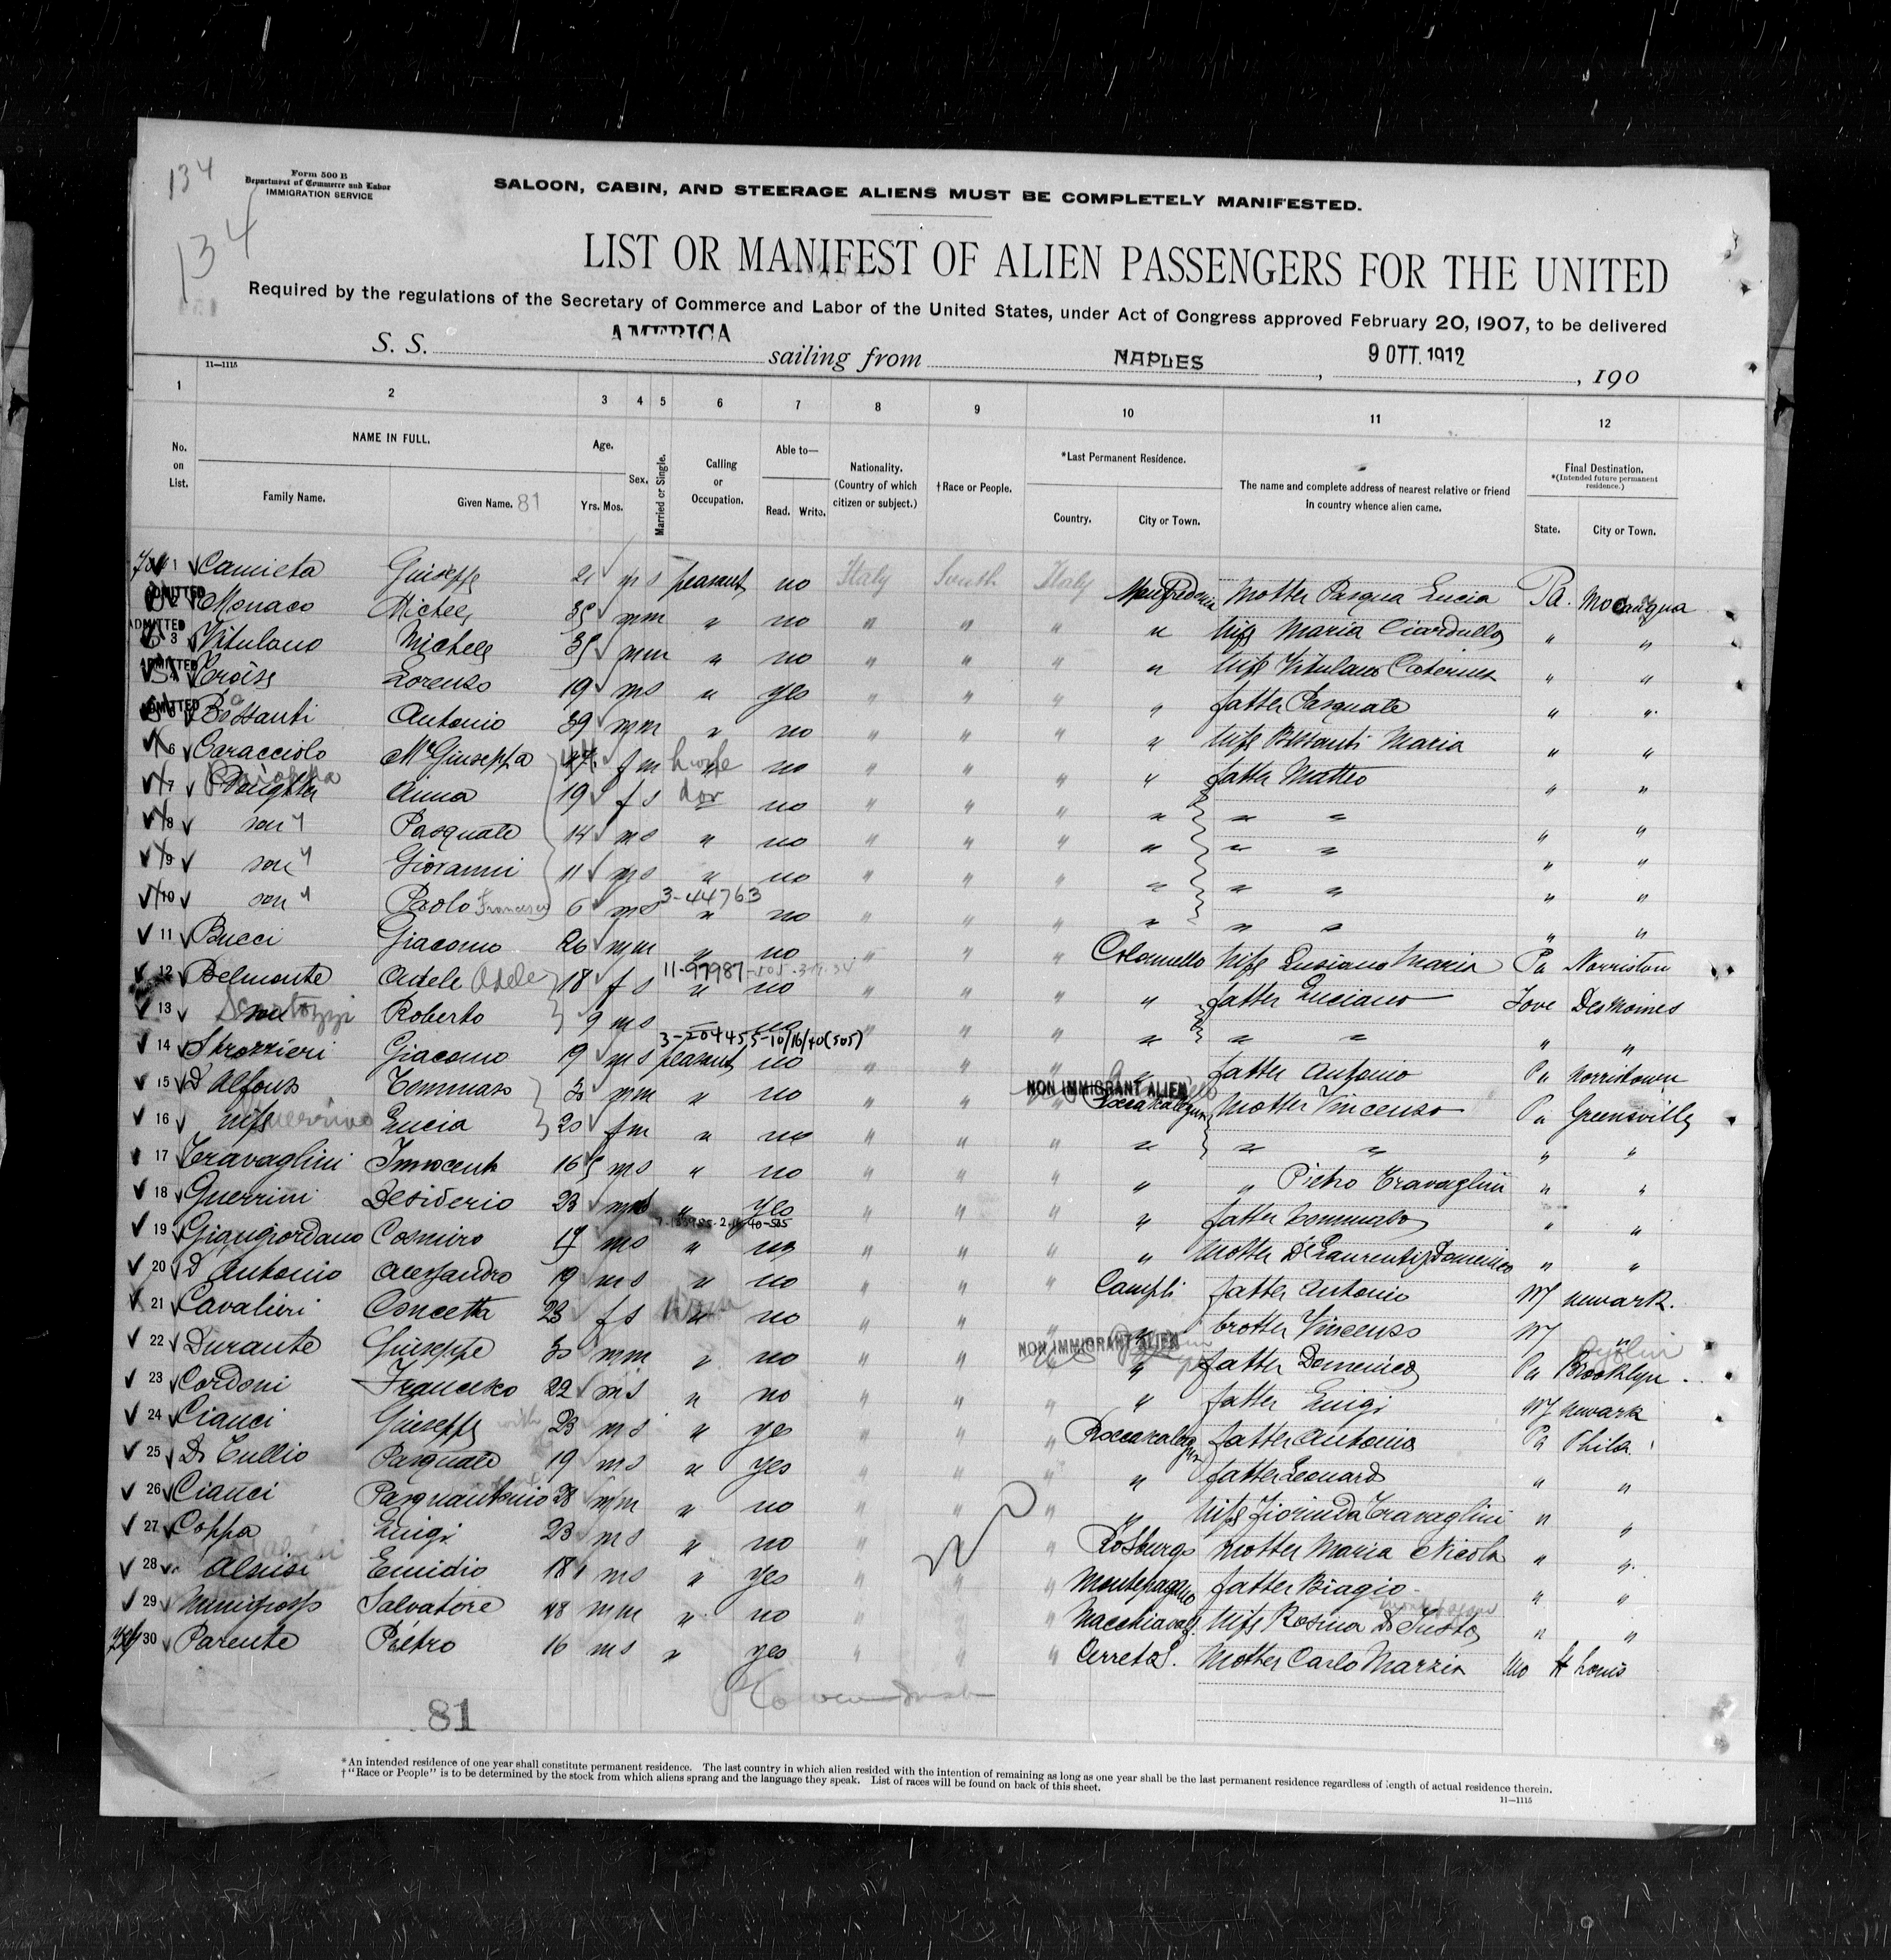 134
Form 500 B
Department of Commerce and Labor
IMMIGRATION SERVICE
SALOON, CABIN, AND STEERAGE ALIENS MUST BE COMPLETELY MANIFESTED.
134
LIST OR MANIFEST OF ALIEN PASSENGERS FOR THE UNITED
Required by the regulations of the Secretary of Commerce and Labor of the United States, under Act of Congress approved February 20, 1907, to be delivered
S. S. AMERICA sailing from NAPLES, 9 OTT. 1912, 190
11—1115
1 2 3 4 5 6 7 8 9 10 11 12
No. on List. NAME IN FULL. Family Name. Given Name. 81 Age. Yrs. Mos. Sex. Married or Single. Calling or Occupation. Able to— Read. Write. Nationality. (Country of which citizen or subject.) †Race or People. *Last Permanent Residence. Country. City or Town. The name and complete address of nearest relative or friend in country whence alien came. Final Destination. *(Intended future permanent residence.) State. City or Town.
1 Camieta Giuseppe 21 m s peasant no Italy South Italy Manfredonia Mother Pasqua Lucia Pa. Mocanaqua
ADMITTED 2 Monaco Michele 35 m m " no " " " " Wife Maria Ciardullo " "
ADMITTED 3 Vitulano Michele 35 m m " no " " " " Wife Vitulano Caterina " "
ADMITTED 4 Troise Lorenzo 19 m s " yes " " " " father Pasquale " "
ADMITTED 5 Bissanti Antonio 39 m m " no " " " " Wife Bissanti Maria " "
6 Caracciolo Ma Giuseppa 44 f m " no " " " " father Matteo " "
7 Daughter Anna 19 f s " no " " " " " " " "
8 son Pasquale 14 m s " no " " " " " " " "
9 son Giovanni 11 m s " no " " " " " " " "
10 son Paolo Francesco 6 m s 3-44763 " no " " " " " " " "
11 Bucci Giacomo 26 m m " no " " " Wife Luciano Maria Pa Norristow
12 Belmonte Adele Adele 18 f s 11-97987 " no " " " " father Luciano Iove DesMoines
13 Roberto 9 m s " no " " " " " " " "
14 Strozzieri Giacomo 19 m s 3-20445 5-10/16/40(505) peasant no " " " " father Antonio Pa Norristown
15 D'Alfonso Tommaso 30 m m " no " " NON IMMIGRANT ALIEN Mother Vincenza Pa Greensville
16 wife Guerrino Lucia 20 f m " no " " " " " " " "
17 Travaglini Innocente 16 m s " no " " " " " Pietro Travaglini " "
18 Guerrini Desiderio 23 m " yes " " " " father Tommaso " "
19 Giangiordano Cosmiro 17 m s " no " " " " Mother De Laurentis Domenica " "
20 D'Antonio Alessandro 19 m s " no " " " Campli father Antonio NJ Newark.
21 Cavalieri Concetta 23 f s " no " " " " brother Vincenzo NJ "
22 Durante Giuseppe 30 m m " no " " NON IMMIGRANT ALIEN " father Domenico Pa Brooklyn
23 Cordoni Francesco 22 m s " no " " " " father Luigi NJ Newark
24 Cianci Giuseppe 23 m s " yes " " " father Antonio Pa Phila.
25 Di Tullio Pasquale 19 m s " yes " " " " father Leonard " "
26 Cianci Pasquantonio 28 m m " no " " " " Wife Fiorinda Travaglini " "
27 Coppa Luigi 23 m s " no " " " Rosburgo Mother Maria Nicola " "
28 Aloisi Emidio 18 m s " yes " " " Montepagano father Biagio " "
29 Salvatore 48 m m " no " " " Macchiavalf. Wife Rosina Di Iusto " "
30 Parente Pietro 16 m s " yes " " " Cerreto S. Mother Carlo Marzia Mo St Louis
81
*An intended residence of one year shall constitute permanent residence. The last country in which alien resided with the intention of remaining as long as one year shall be the last permanent residence regardless of length of actual residence therein.
†"Race or People" is to be determined by the stock from which aliens sprang and the language they speak. List of races will be found on back of this sheet.
11—1115